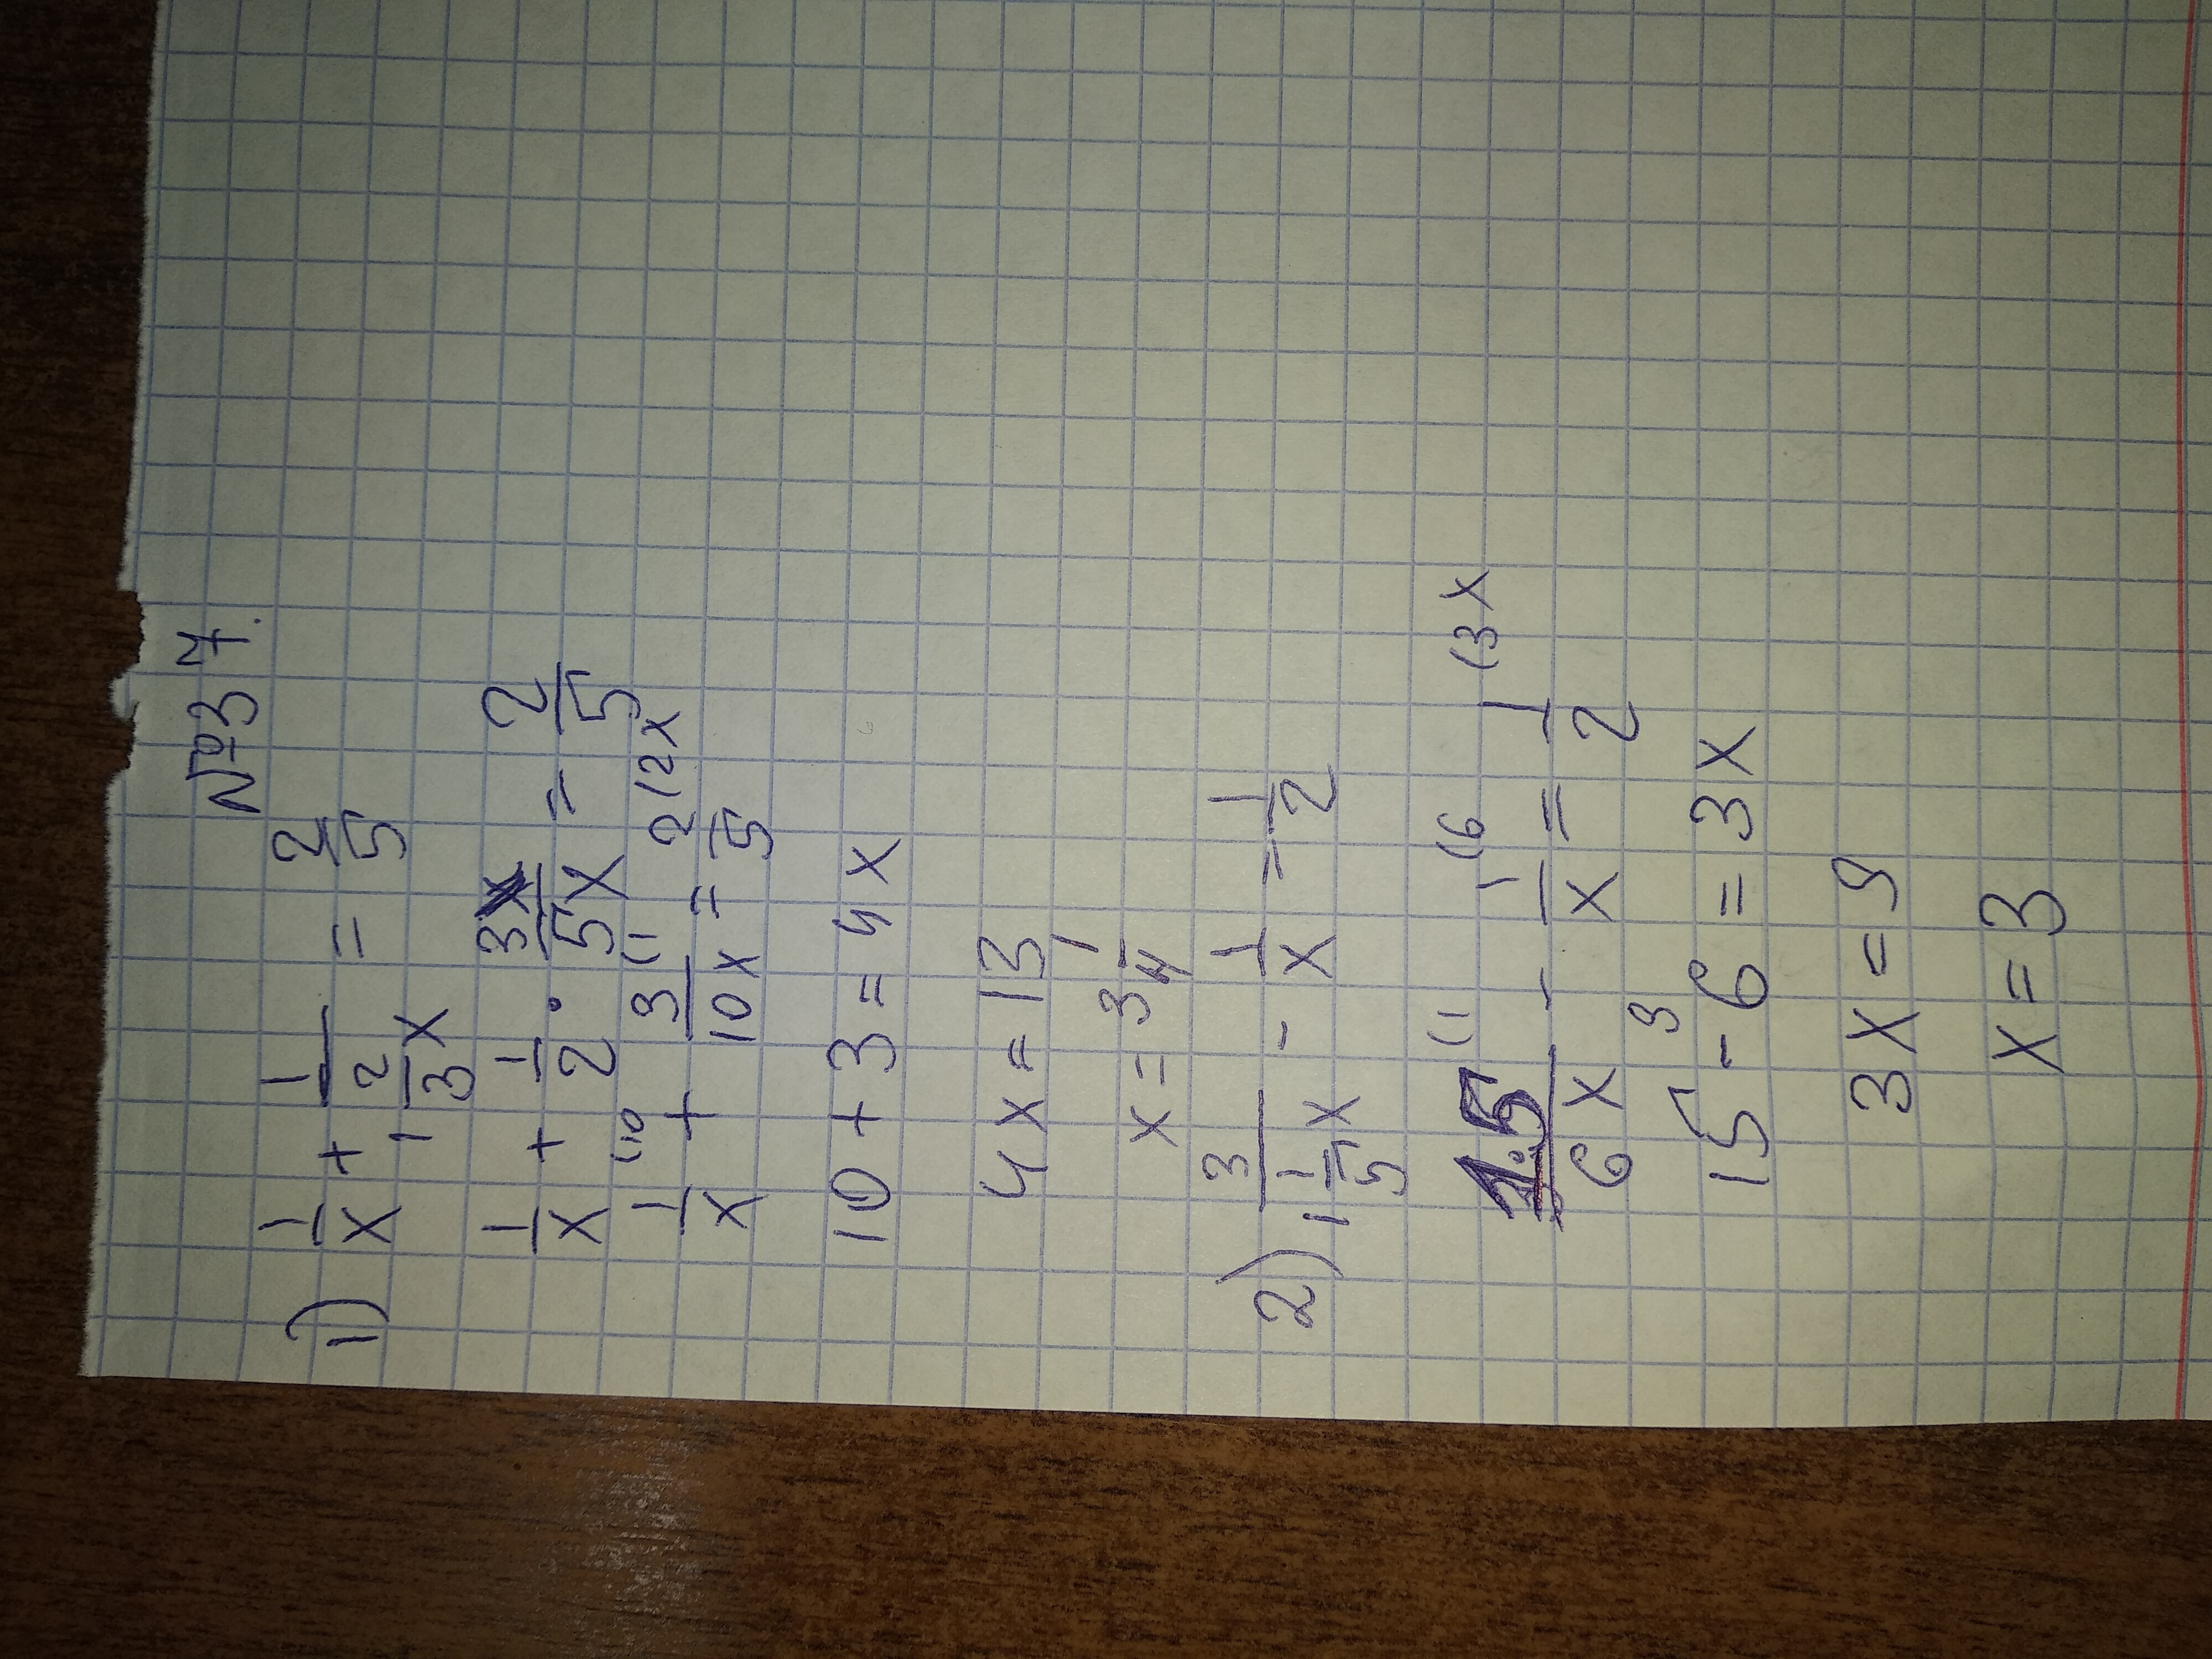 №37.
1) 1/x + 1/(1 2/3 x) = 2/5
1/x + 1/2 · 3/5x = 2/5
1/x (10 + 3/10x (1 = 2/5 (2x
10 + 3 = 4x
4x = 13
x = 3 1/4
2) 3/(1 1/5 x) - 1/x = 1/2
15/6x (1 - 1/x (6 = 1/2 (3x
15 - 6 = 3x
9
3x = 9
x = 3